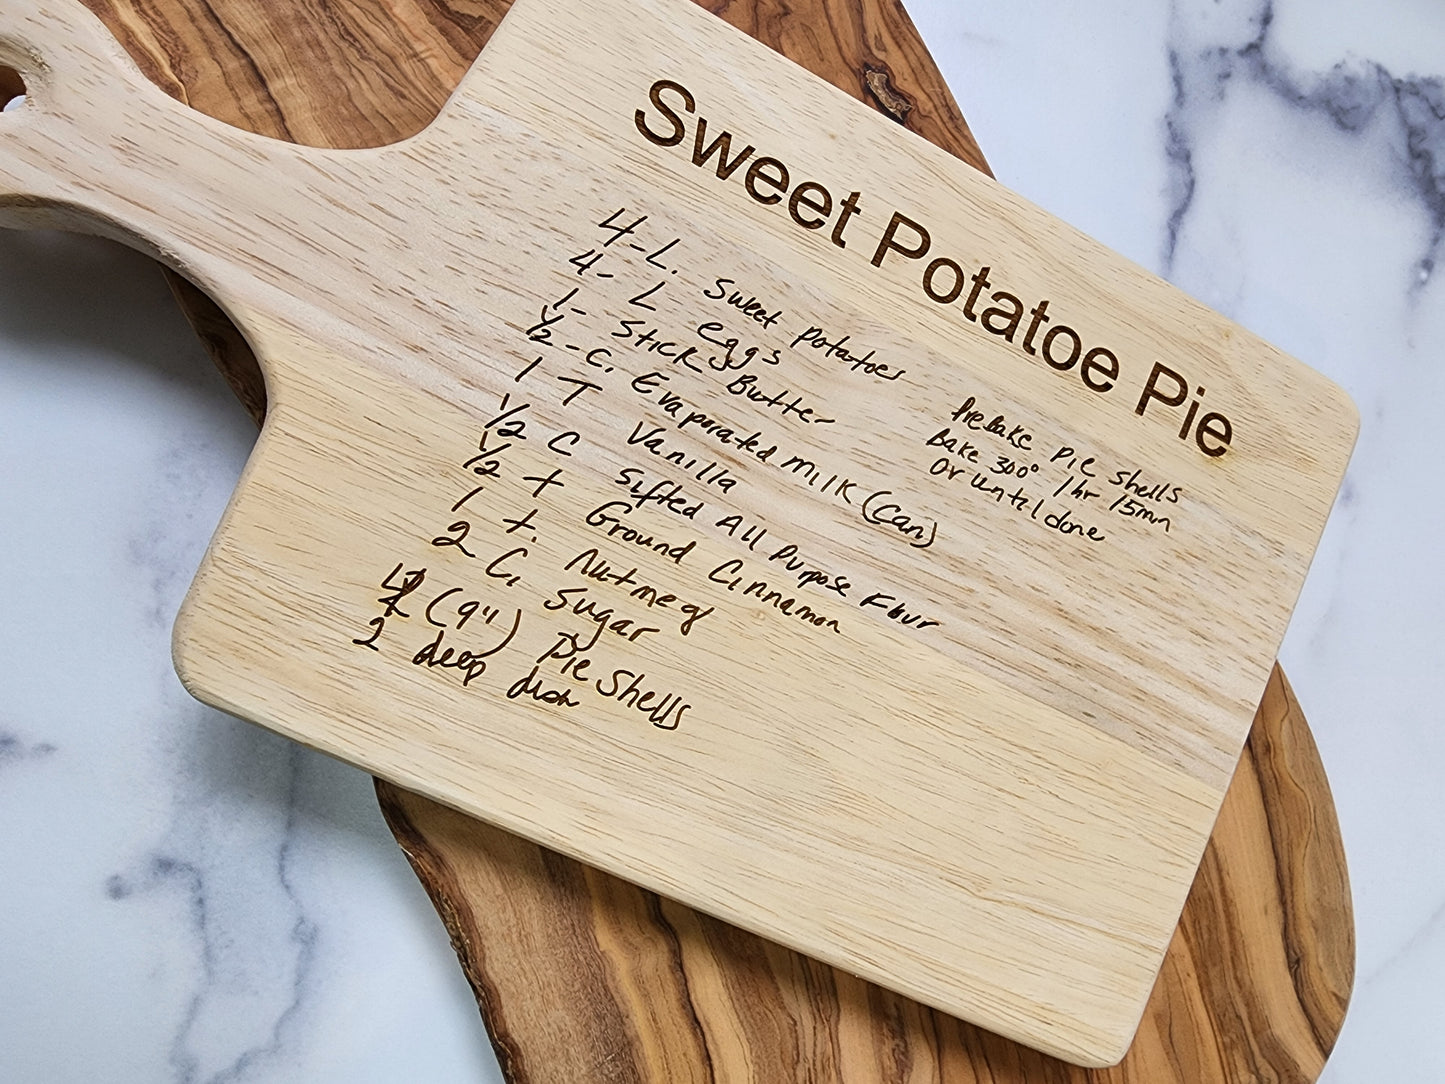 Sweet Potatoe Pie
4-L. Sweet potatoes
4- L eggs
1- Stick Butter
1/2-C. Evaporated Milk (Can)
1 T Vanilla
1/2 C Sifted All Purpose Flour
1/2 t Ground Cinnamon
1 t. Nutmeg
2 C. Sugar
(9") Pie Shells
2 deep dish
Prebake pie shells
Bake 300° 1hr 15mn
or until done